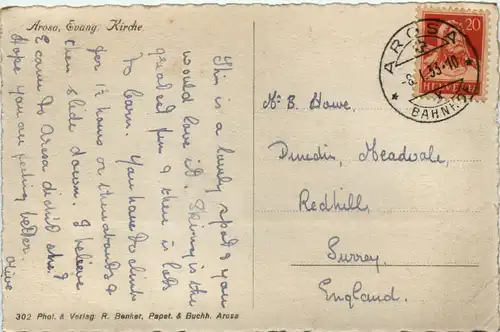 Arosa, Evang. Kirche
This is a lovely spot & you
would love it. Skiing is the
greatest fun & there is lots
to learn. You have to climb
for 1½ hours or thereabouts &
then slide down. I believe
E came to Arosa didn't she?
Hope you are feeling better.
Olive
302 Phot. & Verlag R. Benker, Papet. & Buchh. Arosa
AROSA
-8.I.33-10
BAHNH.
20
HELVETIA
Mr E. Howe.
Dunedin, Meadvale,
Redhill,
Surrey.
England.